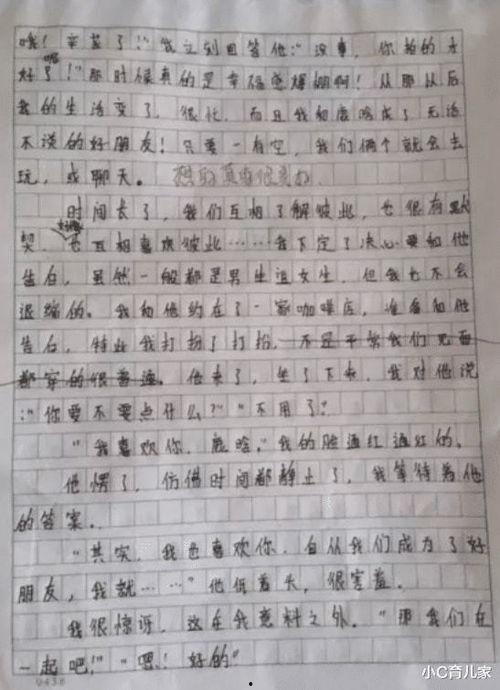 哦！辛苦了！"我立刻回答他："没事，你拍的太
好了喔！"那时候真的是幸福感爆棚啊！从那以后
我的生活变了，很忙，而且我和鹿晗成了无话
不谈的好朋友！只要一有空，我们俩个就会去
玩，或聊天。想的真有
时间长了，我们互相了解彼此，也很有默
契，也互相喜欢彼此……我下定了决心要和他
告白，虽然一般都是男生追女生，但我也不会
退缩的。我和他约在了一家咖啡店，准备和他
告白，特此我打扮了打扮，不是平常我们见面
都穿的很普通。他来了，坐了下来，我对他说
："你要不要点什么？""不用了"
"我喜欢你，鹿晗。"我的脸通红通红的。
他愣了，仿佛时间都静止了，我等待着他
的答案。
"其实，我也喜欢你，自从我们成为了好
朋友，我就……"他低着头，很害羞。
我很惊讶，这在我意料之外。"那我们在
一起吧！""嗯！好的"
0438
小C育儿家